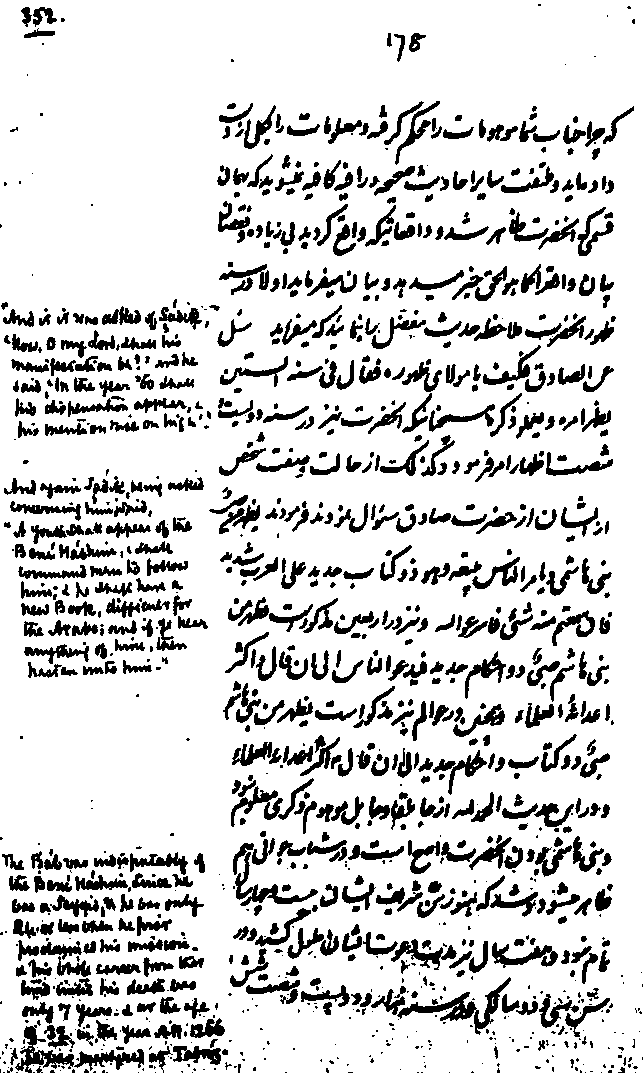 352.
۱۷۸
که چرا جناب شما موهومات را محکم گرفته و معلومات را بکلی از دست
داده‌اید و ملتفت سایر احادیث صحیحه در افیه کافیه نمیشوید که بهمان
قسمی که آنحضرت ظاهر شد و واقعاتیکه واقع گردید بی زیاده و نقصان
بیان واقع را کما هو الحق خبر میدهد و بیان میفرماید اولا در سنه
ظهور آنحضرت ملاحظه حدیث مفضل را بنمائید که میفرماید سئل
عن الصادق فکیف یا مولای ظهوره فقال فی سنه الستین
یظهر امره و یعلو ذکره آنحضرت نیز در سنه دویست
شصت اظهار امر فرمود و کذلک از حالت و صفت شخص
ایشان از حضرت صادق سئوال نمودند فرمودند یظهر من
بنی هاشمی و یامر الناس ببیعته و هو ذو کتاب جدید علی العرب شدید
فان سمعتم منه شئی فاسرعوا الیه و نیز در اربعین مذکور است یظهر من
بنی هاشم صبی ذو احکام جدید فیدعو الناس الی ان قال و اکثر
اعدائه العلماء و نیز در عوالم نیز مذکور است یظهر من بنی هاشم
صبی ذو کتاب و احکام جدید الی ان قال و اکثر اعدائه العلماء
و در این حدیث الحمد لله از جابلقا و جابل موهوم ذکری
و بنی هاشمی بودن آنحضرت واضح است و در شباب جوانی هم
ظاهر میشود و شد که هنوز سن شریف ایشان بیست و چهار سال
تمام نبود و هفت سال نیز مدت دعوت ایشان طول کشید و در
سن سی و دو سالگی در سنه هزار و دویست و شصت شش
"And it was asked of Sádik,
"How, O my Lord, shall his
manifestation be?" and he
said, "In the year '60 shall
his dispensation appear, &
his mention rise on high."
And again Sádik, being asked
concerning him, said,
"A youth shall appear of the
Bení Háshim, & shall
command men to follow
him; & he shall have a
new Book, difficult for
the Arabs; and if ye hear
anything of him, then
hasten unto him."
The Báb was indisputably of
the Bení Háshim, since he
was a Seyyid, & he was only
24 or less when he first
proclaimed his mission.
& his whole career from this
time until his death was
only 7 years. & at the age
of 32 in the year A.H. 1266
he was martyred at Tabríz.